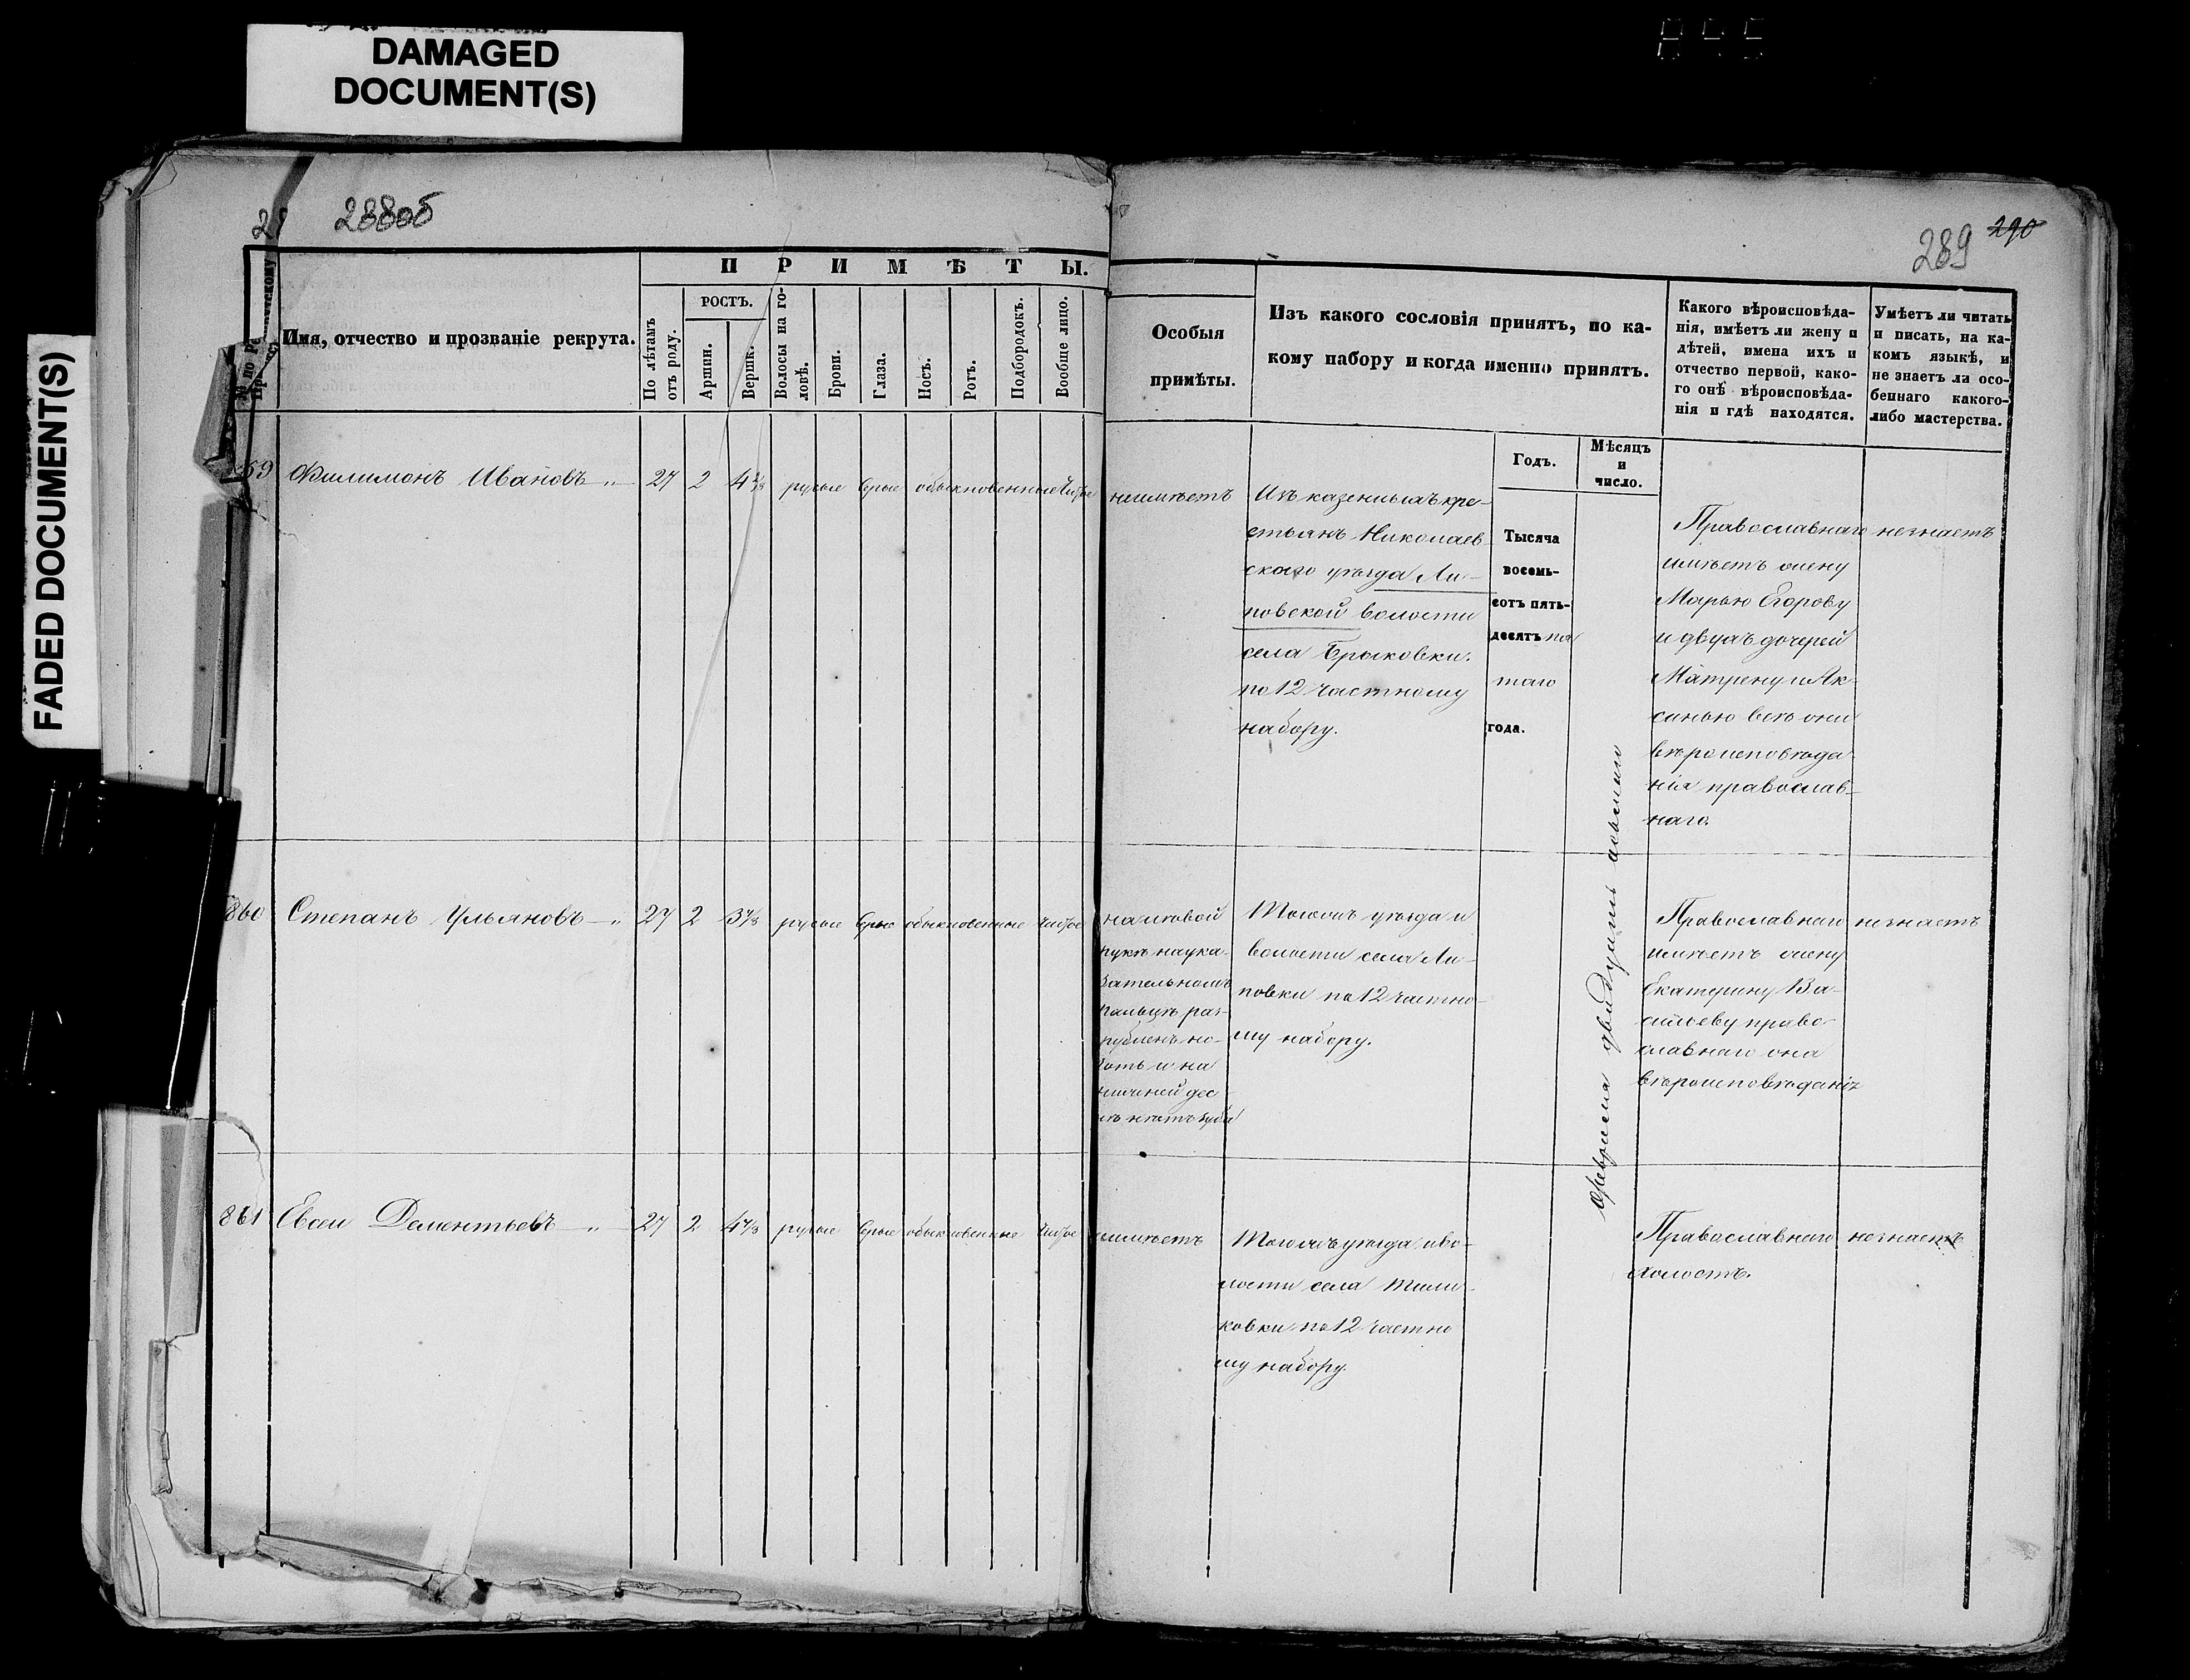 DAMAGED
DOCUMENT(S)
FADED DOCUMENT(S)
288об
289 290
ПРИМѢТЫ.
Имя, отчество и прозваніе рекрута.
По лѣтамъ
отъ роду.
РОСТЪ.
Аршин.
Вершк.
Волосы на го-
ловѣ.
Брови.
Глаза.
Носъ.
Ротъ.
Подбородокъ.
Вообще лицо.
Особыя
примѣты.
Изъ какого сословія принятъ, по ка-
кому набору и когда именно принятъ.
Какого вѣроисповѣда-
нія, имѣетъ ли жену и
дѣтей, имена ихъ и
отчество первой, како-
го онѣ вѣроисповѣда-
нія и гдѣ находятся.
Умѣетъ ли читать
и писать, на ка-
комъ языкѣ, и
не знаетъ ли осо-
беннаго какого-
либо мастерства.
Годъ.
Мѣсяцъ
и
число.
59 Филимонъ Ивановъ 27 2 4 русые серые обыкновенные чистое
неимѣетъ
Изъ казенныхъ кре-
стьянъ Николаев
скаго уѣзда Ли-
повской волости
села Брыковки.
по 12 частному
набору.
Тысяча
восемь-
сотъ пять-
десятъ пя
таго
года.
Февраля двадцать осьмаго
Православнаго
имѣетъ жену
Марью Егорову
и двухъ дочерей
Матрену и Ак-
синью всѣ они
вѣроисповѣда
нія православ-
наго.
незнаетъ
860 Степанъ Ульяновъ 27 2 3 7/8 русые серые обыкновенные чистое
на лѣвой
рукѣ на ука-
зательномъ
пальцѣ раз-
рубленъ но-
готь и на
нижней дес-
нѣ нѣтъ зуба
Тогожъ уѣзда и
волости села Ли-
повки по 12 частно-
му набору.
Православнаго
имѣетъ жену
Екатерину Ва-
сильеву право-
славнаго она
вѣроисповѣданія
незнаетъ
861 Евсей Дементьевъ 27 2 4 7/8 русые серые обыкновенные чистое
неимѣетъ
Тогожъ уѣзда и во-
лости села
ковки по 12 частно
му набору.
Православнаго
холостъ.
незнаетъ